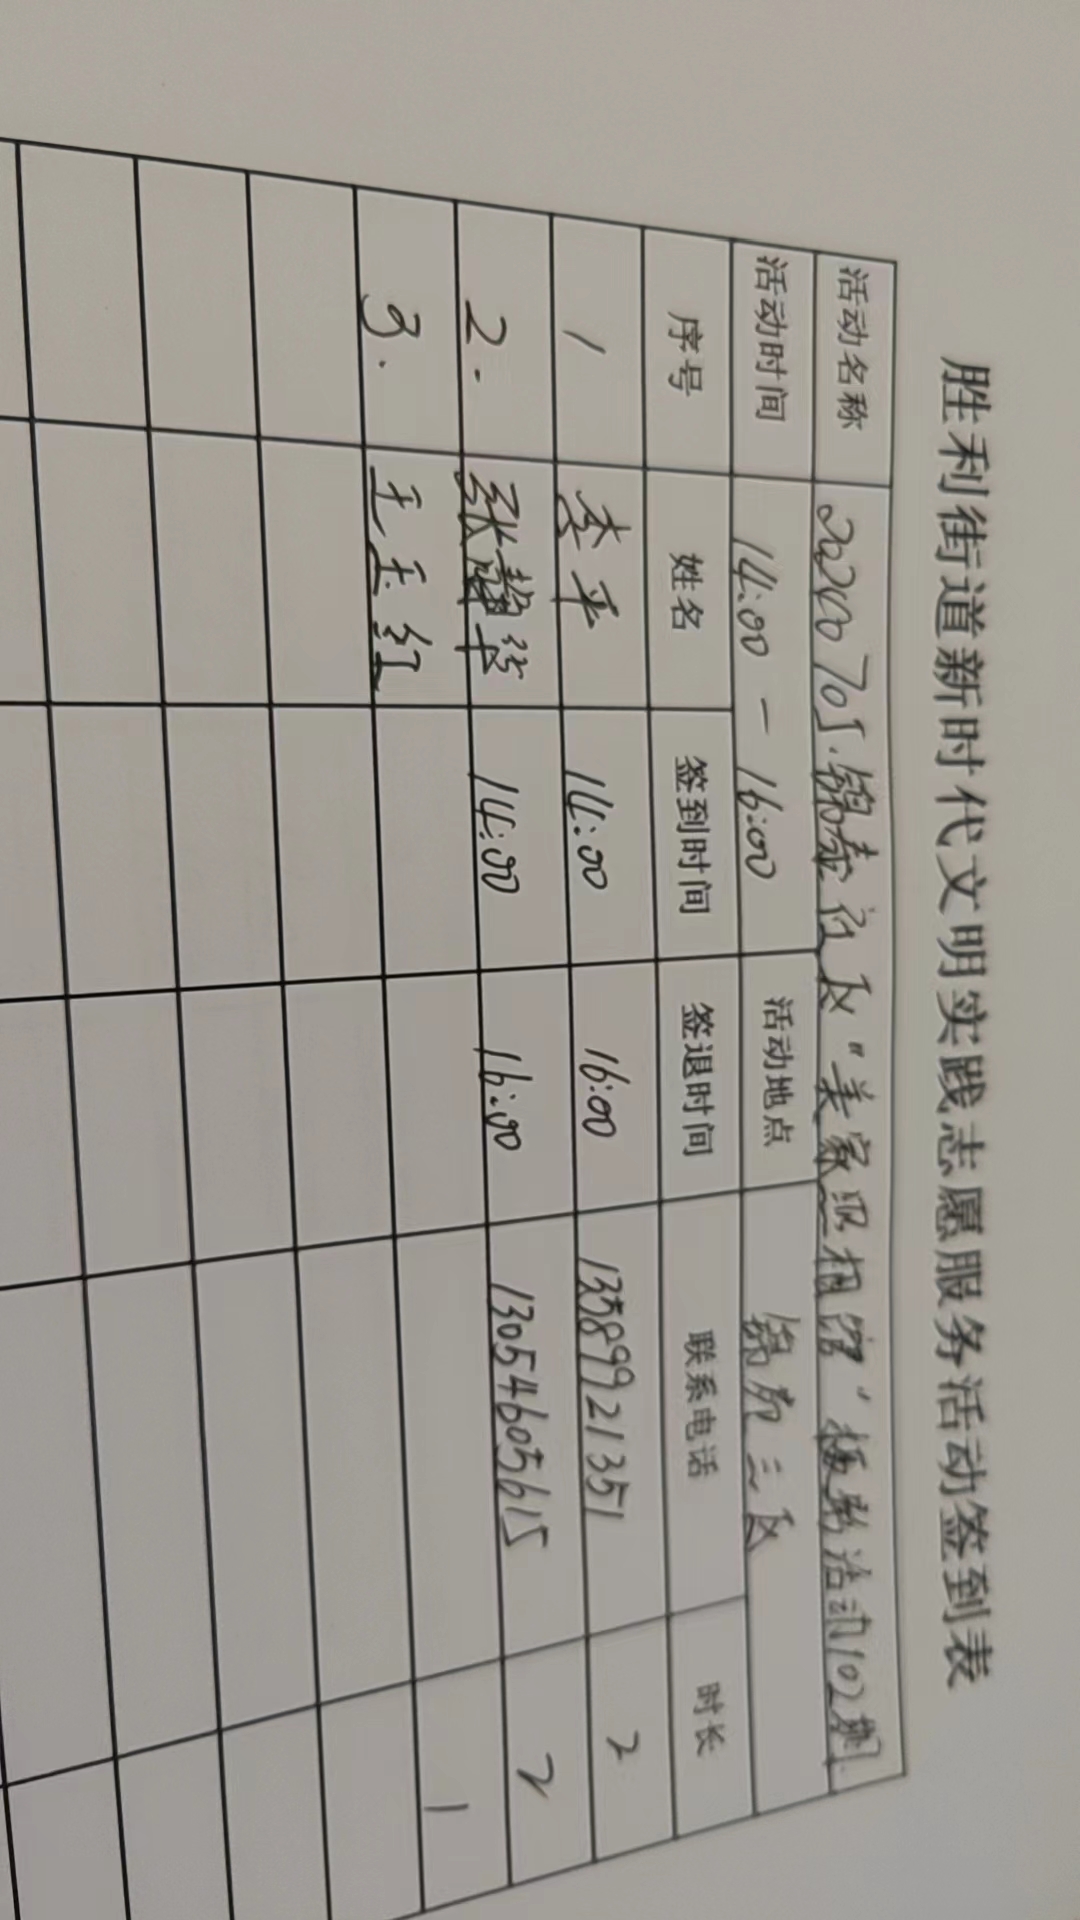 胜利街道新时代文明实践志愿服务活动签到表
活动名称 20240705.锦泰社区"美家照相馆"摄影活动102期
活动时间 14:00 — 16:00 活动地点 锦苑三区
序号 姓名 签到时间 签退时间 联系电话 时长
1 李平 14:00 16:00 13589921351 2
2. 张 华 14:00 16:00 13054605615 2
3. 王玉红 1